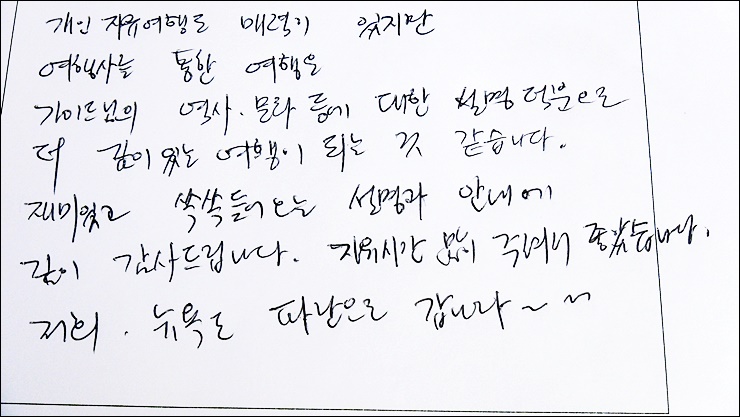 개인 자유여행도 매력이 있지만
여행사를 통한 여행은
가이드님의 역사·문화 등에 대한 설명 덕분으로
더 깊이 있는 여행이 되는 것 같습니다.
재미있고 쏙쏙 들어오는 설명과 안내에
깊이 감사드립니다. 자유시간 많이 주셔서 좋았습니다.
저희. 뉴욕도 파란으로 갑니다~~